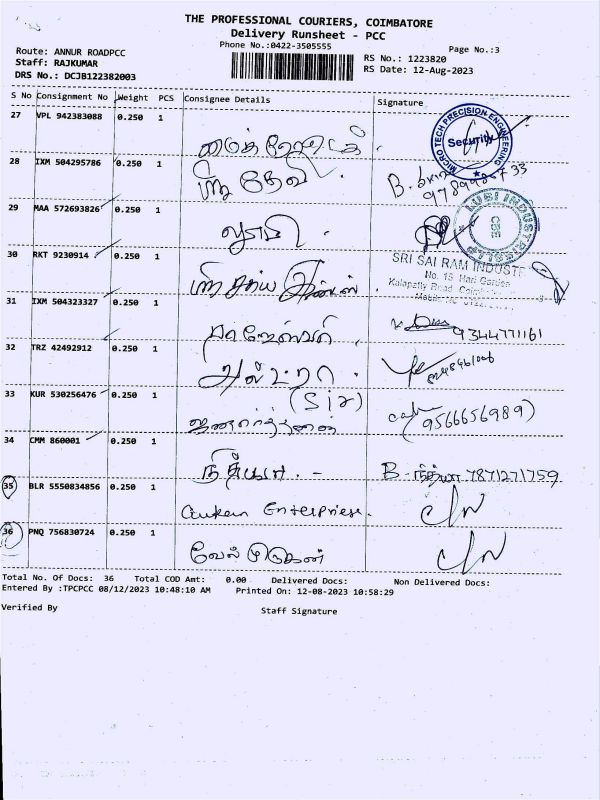 THE PROFESSIONAL COURIERS, COIMBATORE
Delivery Runsheet - PCC
Phone No.:0422-3505555
Page No.:3
Route: ANNUR ROADPCC
Staff: RAJKUMAR
DRS No.: DCJB122382003
RS No.: 1223820
RS Date: 12-Aug-2023
S No Consignment No Weight PCS Consignee Details Signature
27 VPL 942383088 0.250 1
MICRO TECH PRECISION ENGINEERING
Security
28 IXM 504295786 0.250 1
ஸ்ரீ தேவி
29 MAA 572693826 0.250 1
30 RKT 9230914 0.250 1
SRI SAI RAM
No. 18 Hari Garden
Kalapatty Road
31 IXM 504323327 0.250 1
ராஜேஸ்வரி 9344771161
32 TRZ 42492912 0.250 1
33 KUR 530256476 0.250 1
(Sir)
9566656989)
34 CMM 860001 0.250 1
நித்யா. - B- நித்யா 7871271759
35 BLR 5550834856 0.250 1
Enterprises. C/N
36 PNQ 756830724 0.250 1
வேல் முருகன் C/N
Total No. Of Docs: 36 Total COD Amt: 0.00 Delivered Docs: Non Delivered Docs:
Entered By :TPCPCC 08/12/2023 10:48:10 AM Printed On: 12-08-2023 10:58:29
Verified By Staff Signature